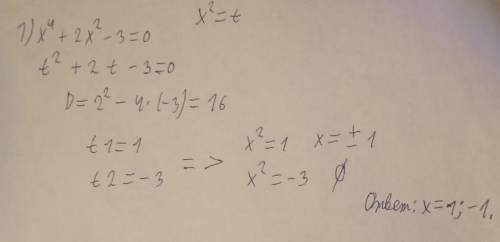 x² = t
1) x⁴ + 2x² - 3 = 0
t² + 2t - 3 = 0
D = 2² - 4·(-3) = 16
t1 = 1
t2 = -3
=> x² = 1 x = ± 1
x² = -3 ∅
Ответ: x = 1; -1.